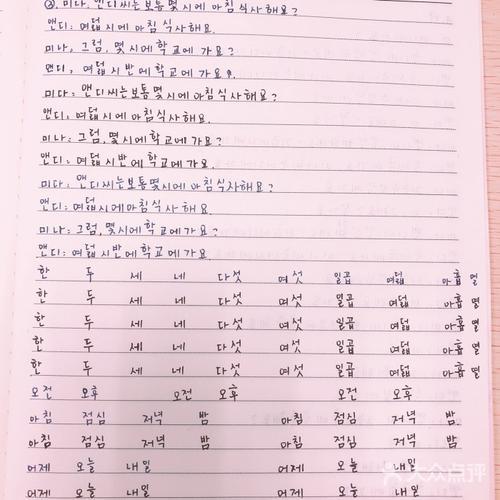 ②. 미나: 앤디씨는보통몇시에 아침 식사해요?
앤디: 여덟시에 아침식사해요.
미나: 그럼, 몇시에학교에 가요?
앤디: 여덟시반에학교에가요.
미나: 앤디씨는보통몇시에아침식사해요?
앤디: 여덟시에아침식사해요.
미나: 그럼, 몇시에학교에가요?
앤디: 여덟시반에학교에가요.
미나: 앤디씨는보통몇시에아침식사해요?
앤디: 여덟시에아침식사해요.
미나: 그럼, 몇시에학교에가요?
앤디: 여덟시반에학교에가요.
한 두 세 네 다섯 여섯 일곱 여덟 아홉 열
한 두 세 네 다섯 여섯 일곱 여덟 아홉 열
한 두 세 네 다섯 여섯 일곱 여덟 아홉 열
한 두 세 네 다섯 여섯 일곱 여덟 아홉 열
한 두 세 네 다섯 여섯 일곱 여덟 아홉 열
오전 오후 오전 오후 오전 오후
아침 점심 저녁 밤 아침 점심 저녁 밤
아침 점심 저녁 밤 아침 점심 저녁 밤
어제 오늘 내일 어제 오늘 내일
어제 오늘 내일 어제 오늘 내일
大众点评